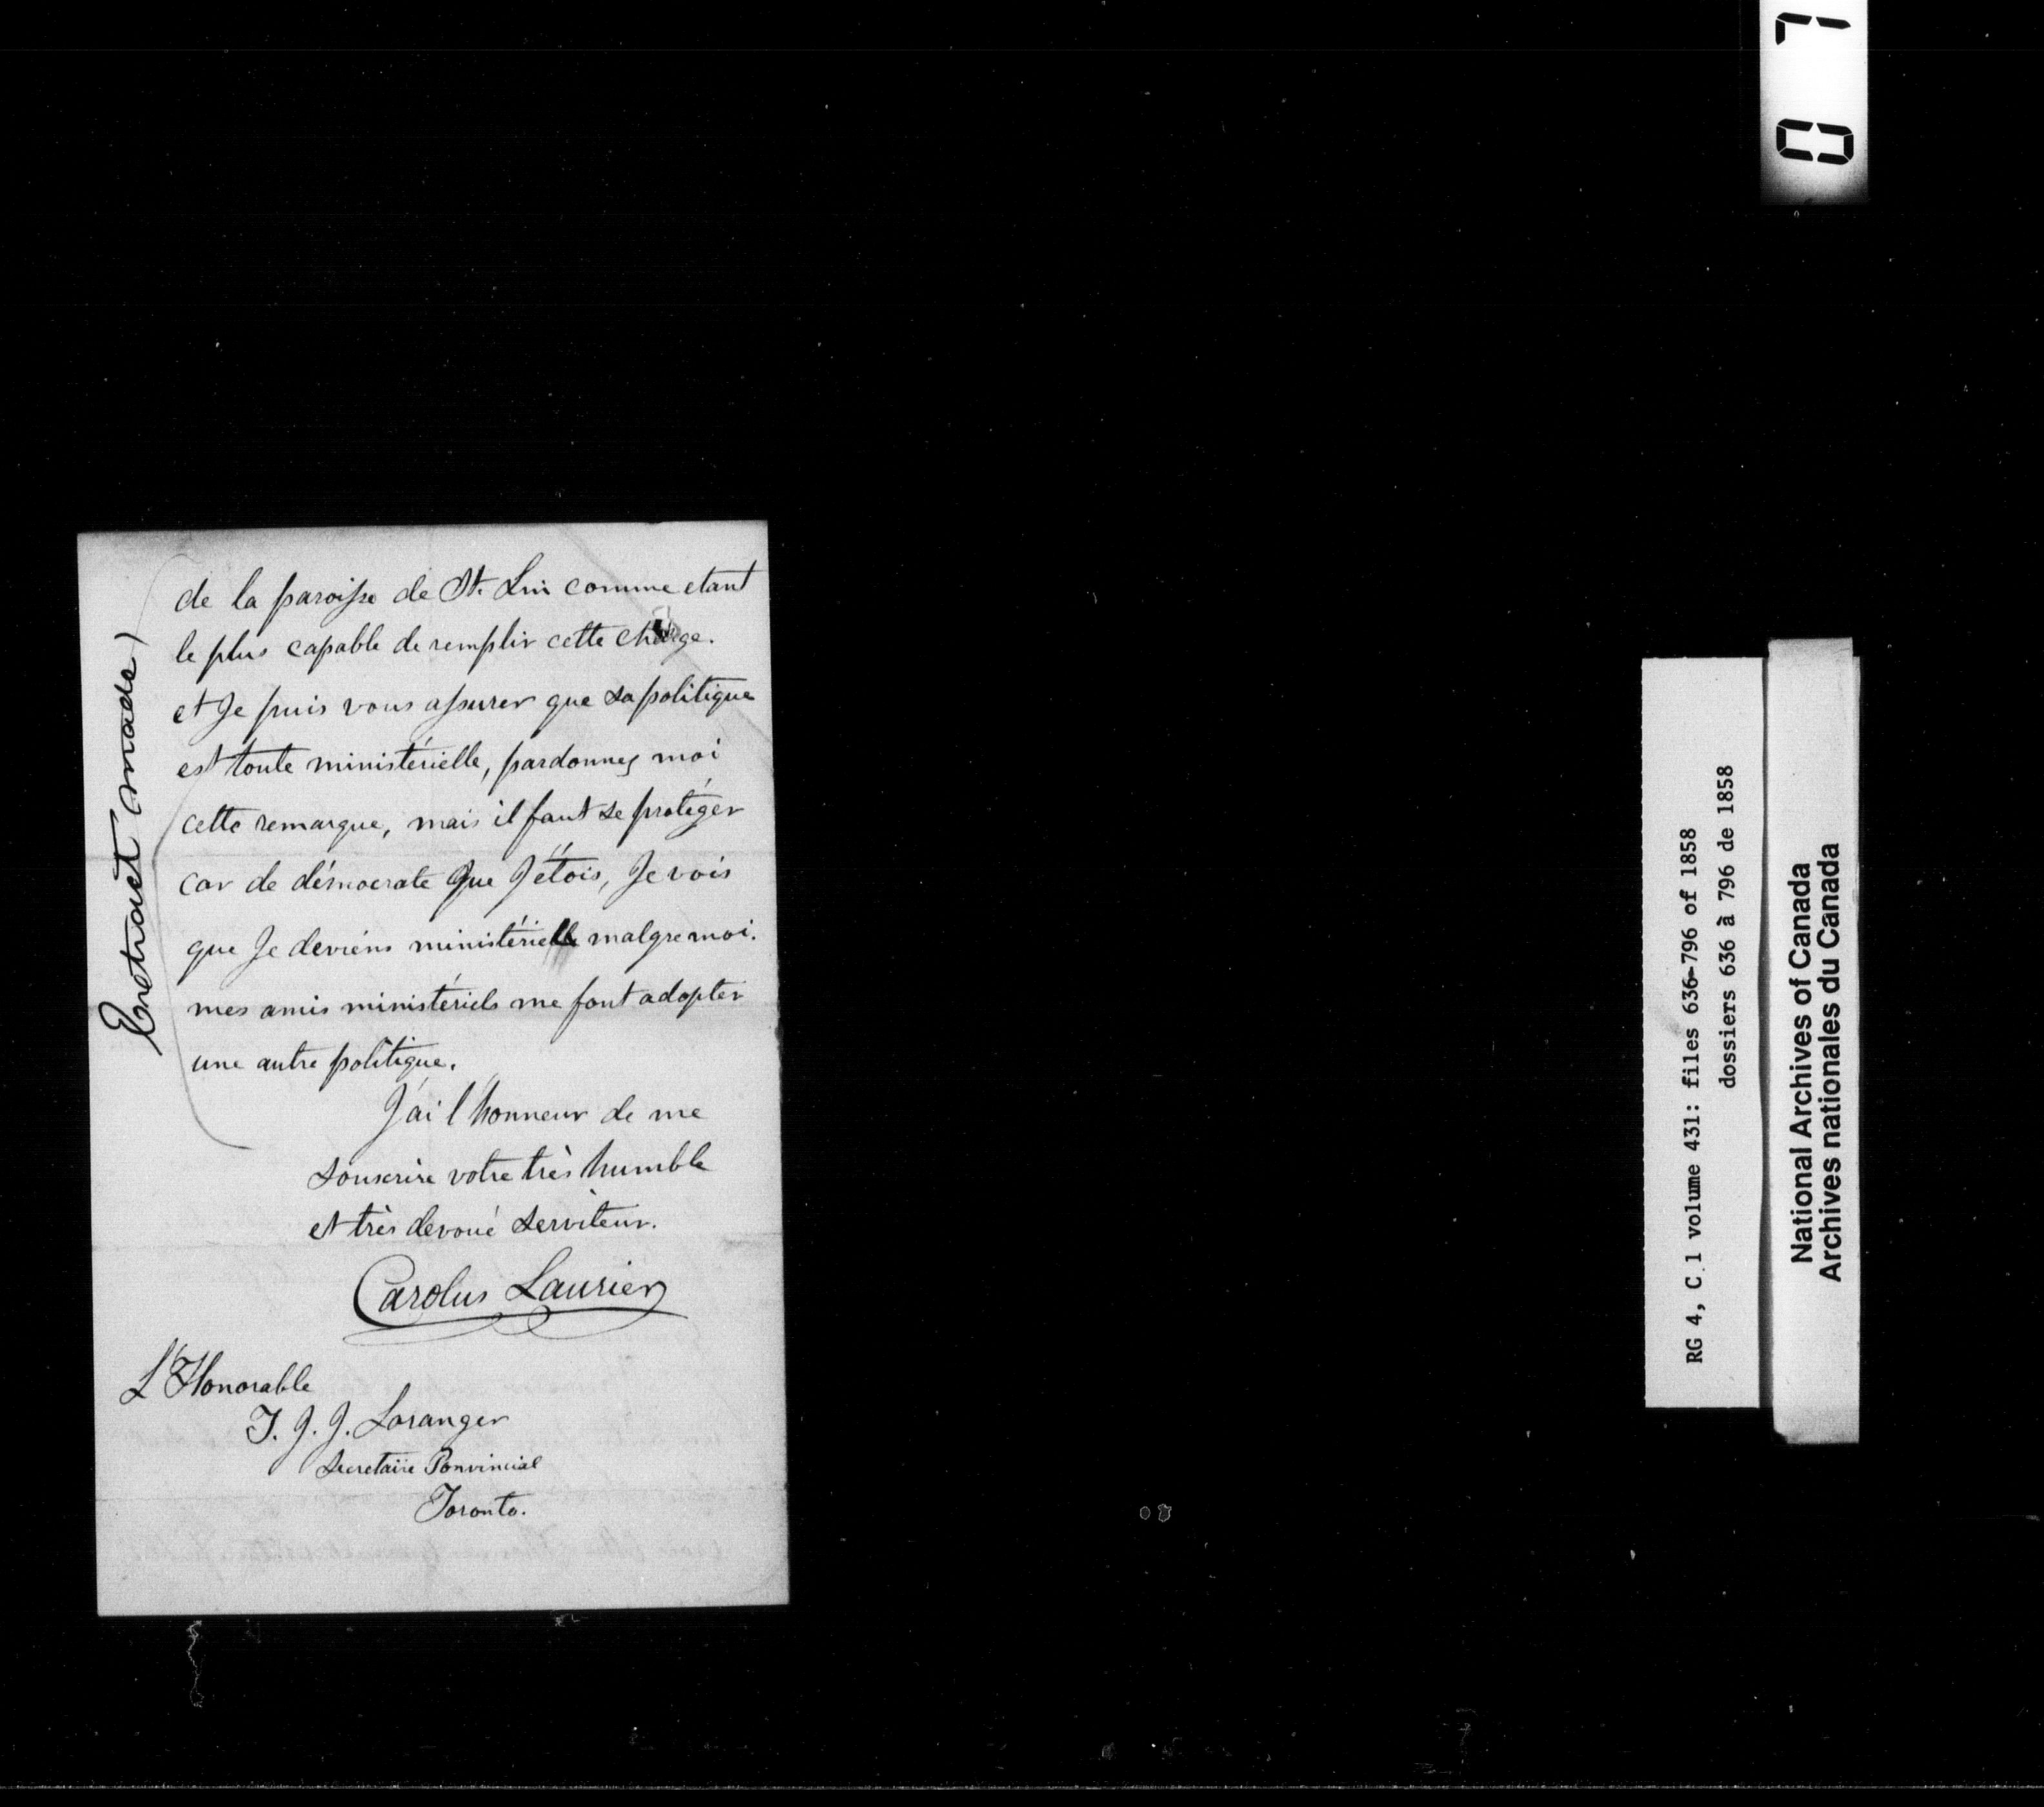 de la paroisse de St. Lin comme etant
le plus capable de remplir cette charge.
et Je puis vous assurer que sa politique
est toute ministérielle, pardonnez moi
cette remarque, mais il faut se protéger
car de démocrate que J'étois, Je vois
que Je deviens ministérielle malgre moi.
mes amis ministériels me font adopter
une autre politique.
J'ai l'honneur de me
souscrire votre très humble
et très devoué serviteur.
Carolus Laurier
L'Honorable
T. J. J. Loranger
Secretaire Ponvincial
Toronto.
Extract made)
07
RG 4, C 1 volume 431: files 636-796 of 1858
dossiers 636 à 796 de 1858
National Archives of Canada
Archives nationales du Canada